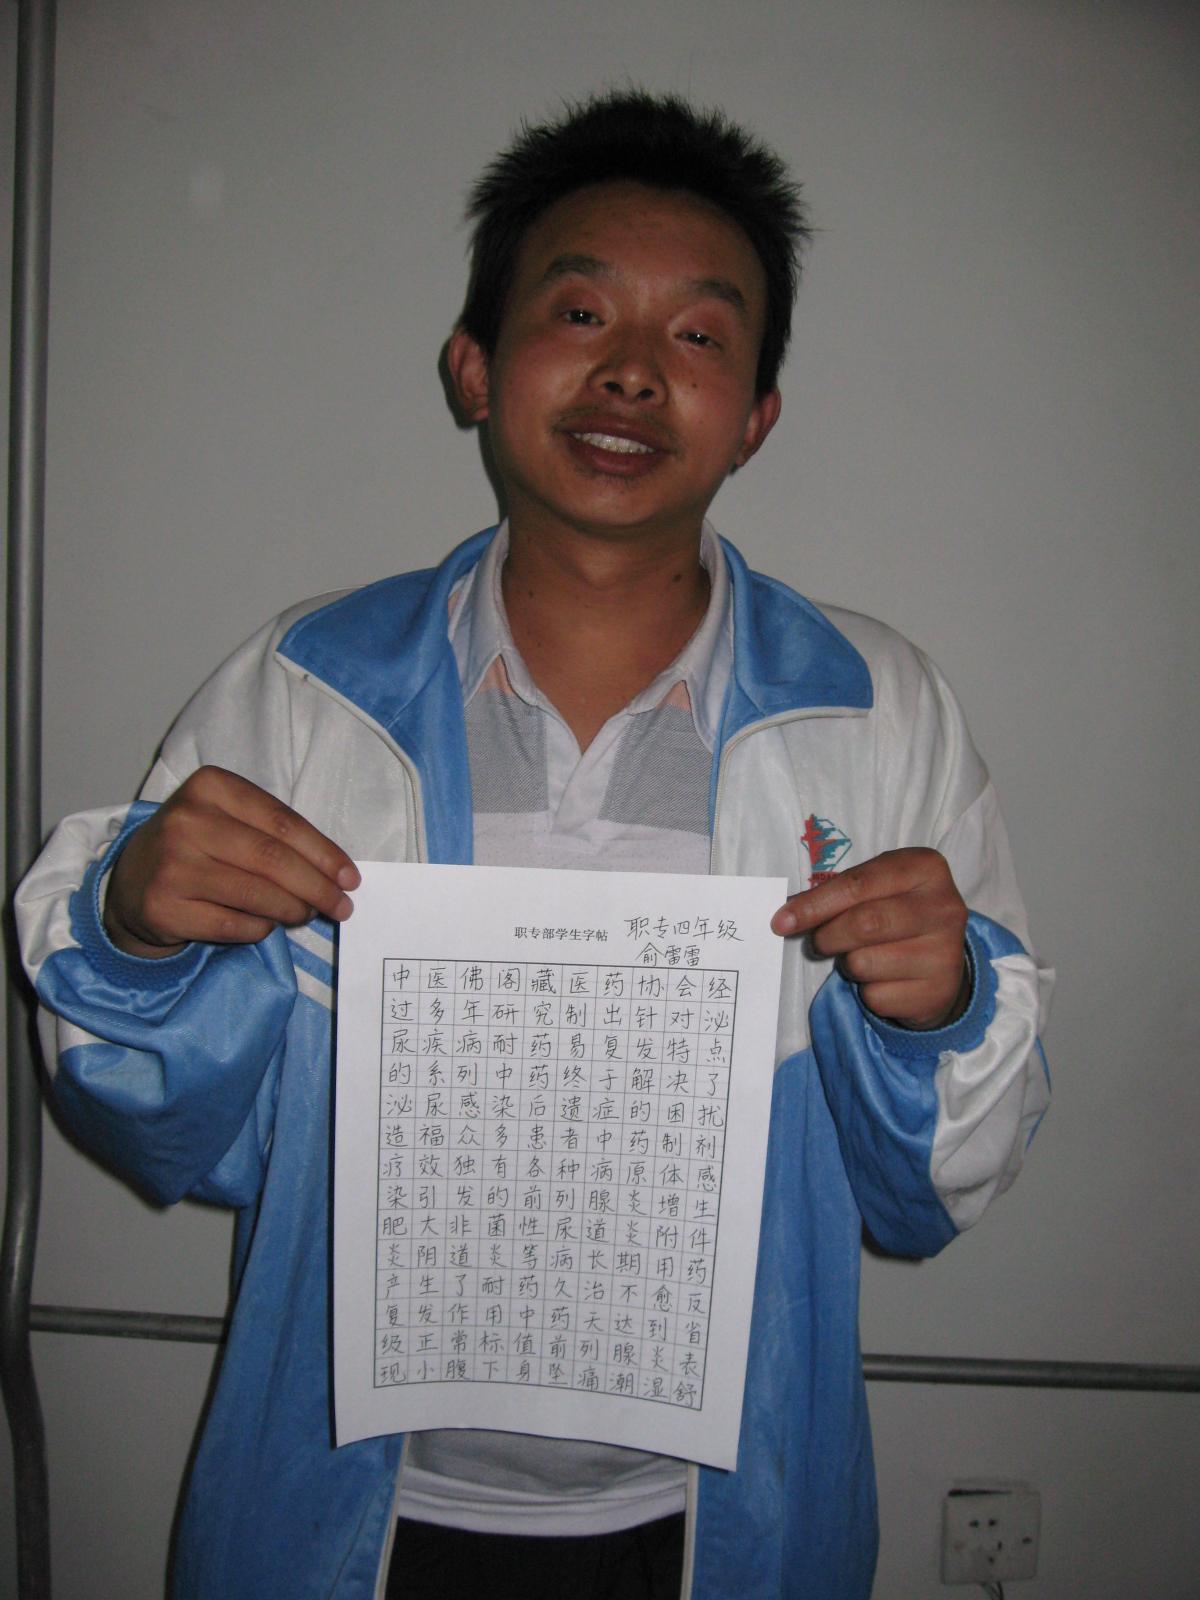 职专部学生字帖 职专四年级
俞雷雷
中医佛阁藏医药协会经
过多年研究制出针对泌
尿疾病耐药易复发特点
的系列中药终于解决了
泌尿感染后遗症的困扰
造福众多患者中药制剂
疗效独有各种病原体感
染引发的前列腺炎增生
肥大非菌性尿道炎附件
炎阴道炎等病长期用药
产生了耐药久治不愈反
复发作用中药天达到省
级正常标值前列腺炎表
现小腹下身坠痛潮湿舒